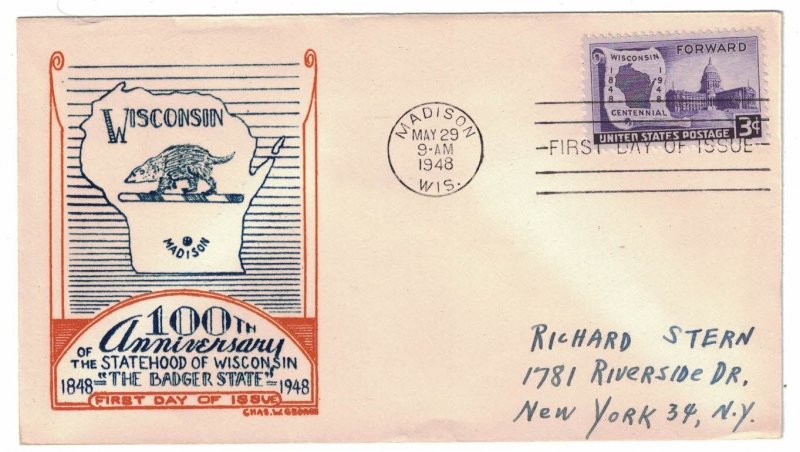 WISCONSIN
MADISON
100TH
Anniversary
OF
THE STATEHOOD OF WISCONSIN
1848 "THE BADGER STATE" 1948
FIRST DAY OF ISSUE
CHAS. W. GEORGE
MADISON
MAY 29
9-AM
1948
WIS.
FORWARD
WISCONSIN
1848
1948
CENTENNIAL
UNITED STATES POSTAGE 3¢
FIRST DAY OF ISSUE
RICHARD STERN
1781 RIVERSIDE DR.
NEW YORK 34, N.Y.